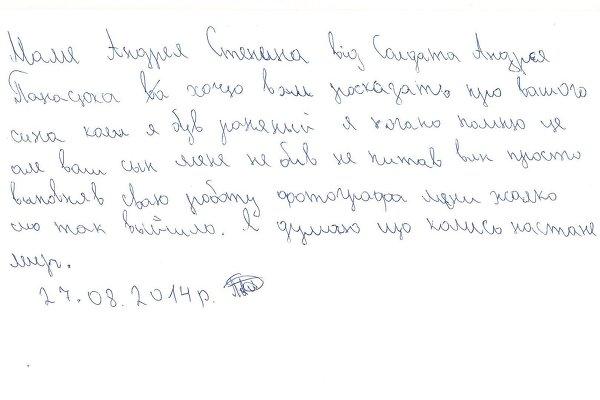 Маме Андрея Стенина від Солдата Андрея
Панасюка я хочю вам росказать про вашого
сина коли я був ранений я погано помню це
але ваш сын мене не бив не питав він просто
выповняв сваю роботу фотографа мени жалко
що так выйшло. Я думаю що колись настане
мир.
27.08.2014 р.